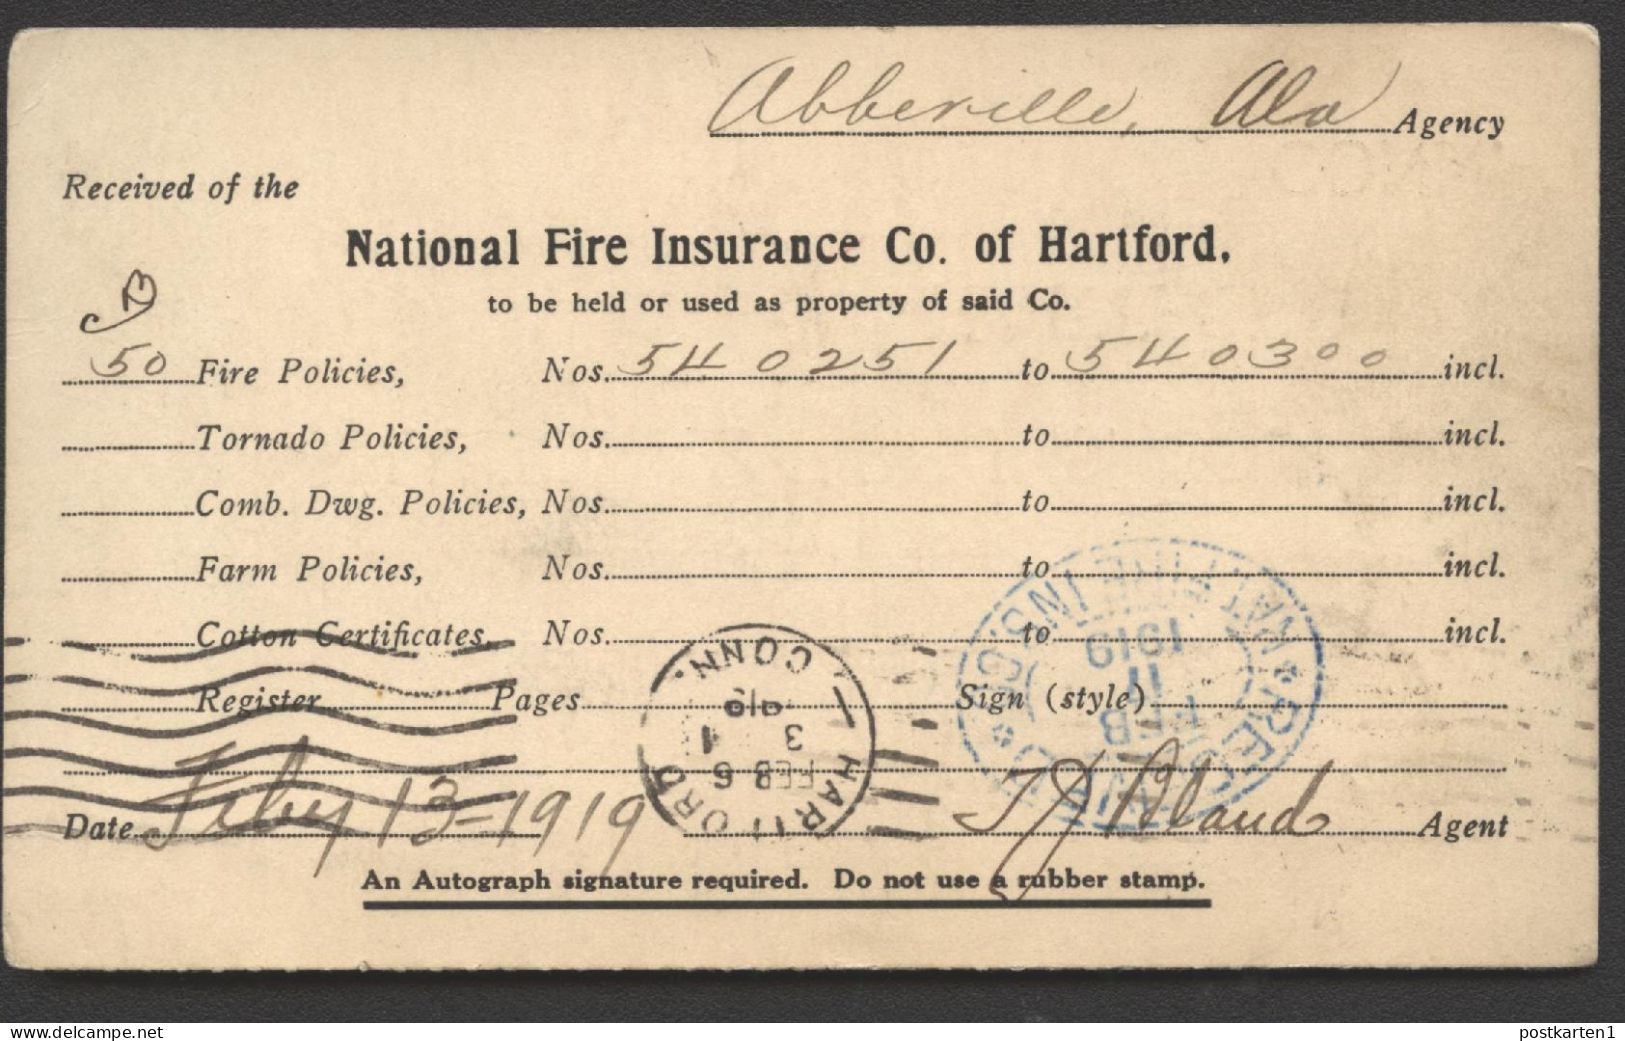 Abbeville, Ala Agency
Received of the
National Fire Insurance Co. of Hartford.
to be held or used as property of said Co.
50 Fire Policies, Nos. 540251 to 540300 incl.
Tornado Policies, Nos. to incl.
Comb. Dwg. Policies, Nos. to incl.
Farm Policies, Nos. to incl.
Cotton Certificates, Nos. to incl.
Register Pages Sign (style)
Date Feby 13-1919 Bland Agent
An Autograph signature required. Do not use a rubber stamp.
HARTFORD CONN.
FEB 6
3
NAT'L FIRE INS. CO. RECEIVED
FEB
11
1919
www.delcampe.net
postkarten1